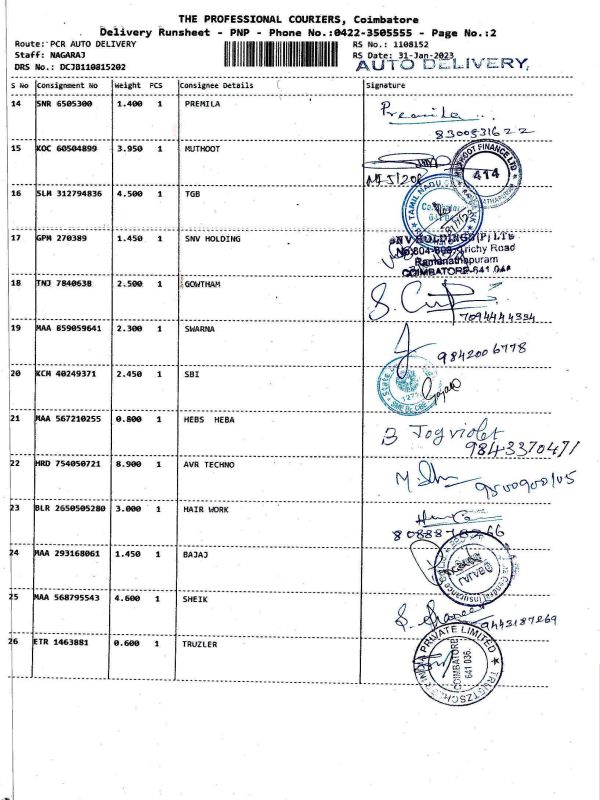 THE PROFESSIONAL COURIERS, Coimbatore
Delivery Runsheet - PNP - Phone No.:0422-3505555 - Page No.:2
Route: PCR AUTO DELIVERY RS No.: 1108152
Staff: NAGARAJ RS Date: 31-Jan-2023
DRS No.: DCJB110815202 AUTO DELIVERY,
S No Consignment No Weight PCS Consignee Details Signature
14 SNR 6505300 1.400 1 PREMILA Premila
8300531622
15 KOC 60504899 3.950 1 MUTHOOT
MUTHOOT FINANCE LTD 414
16 SLM 312794836 4.500 1 TGB
TAMIL NADU
17 GPM 270389 1.450 1 SNV HOLDING SNV HOLDINGS (P) LTD
No.804-808, Trichy Road
Ramanathapuram
COIMBATORE-641 045
18 TNJ 7840638 2.500 1 GOWTHAM
7094444334
19 MAA 859059641 2.300 1 SWARNA
9842006778
20 KCM 40249371 2.450 1 SBI
21 MAA 567210255 0.800 1 HEBS HEBA B Jogviolet
9843370471
22 HRD 754050721 8.900 1 AVR TECHNO
9500900105
23 BLR 2650505280 3.000 1 HAIR WORK
24 MAA 293168061 1.450 1 BAJAJ
BAJAJ
25 MAA 568795543 4.600 1 SHEIK
26 ETR 1463881 0.600 1 TRUZLER
PRIVATE LIMITED
COIMBATORE
641 036.